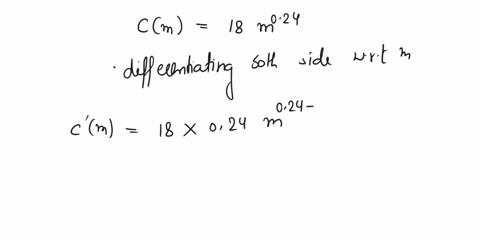 C(m) = 18 m^0.24
· differentiating both side w.r.t m
C'(m) = 18 × 0.24 m^0.24-